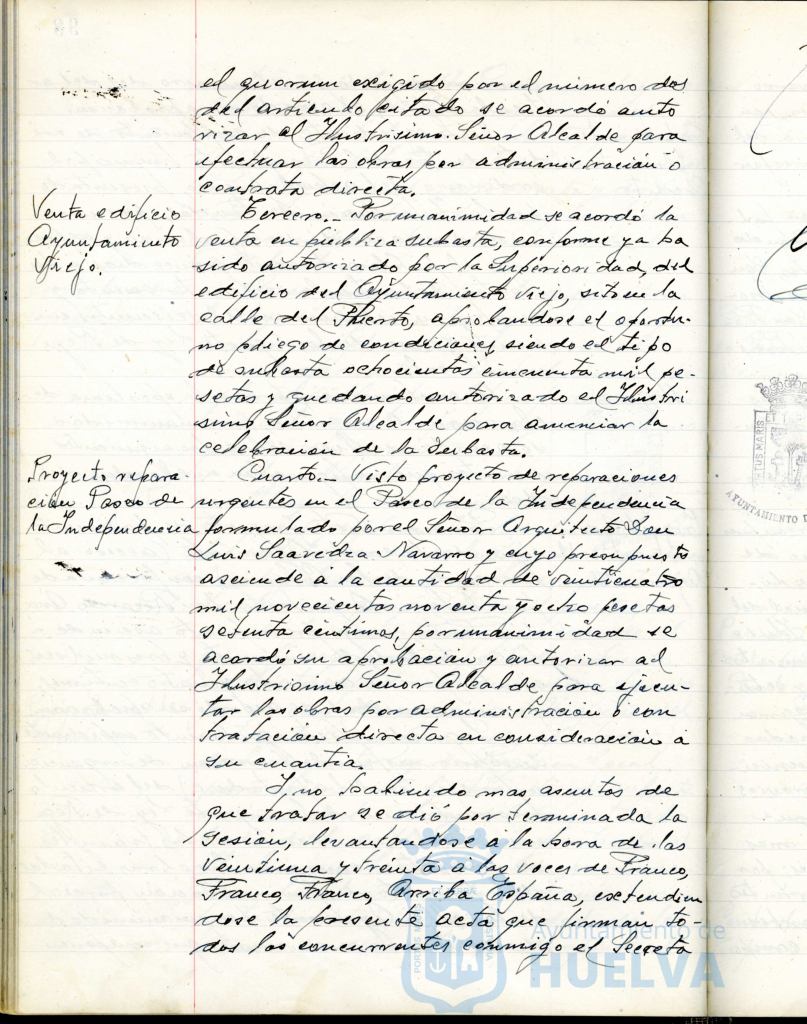 el quorum exigido por el número dos
del articulo citado se acordó auto
rizar al Ilustrisimo Señor Alcalde para
efectuar las obras por administración o
contrata directa.
Venta edificio
Ayuntamiento
Viejo.
Tercero.- Por unanimidad se acordó la
venta en publica subasta, conforme ya ha
sido autorizado por la Superioridad, del
edificio del Ayuntamiento Viejo, sito en la
calle del Puerto, aprobandose el oportu-
no pliego de condiciones siendo el tipo
de subasta ochocientas cincuenta mil pe-
setas y quedando autorizado el Ilustri
simo Señor Alcalde para anunciar la
celebración de la Subasta.
Proyecto repara-
ción Paseo de
la Independencia
Cuarto.- Visto proyecto de reparaciones
urgentes en el Paseo de la Independencia
formulado por el Señor Arquitecto Don
Luis Saavedra Navarro y cuyo presupuesto
asciende á la cantidad de veinticuatro
mil novecientas noventa y ocho pesetas
setenta centimos, por unanimidad se
acordó su aprobación y autorizar al
Ilustrisimo Señor Alcalde para ejecu-
tar las obras por administración o con
tratación directa en consideración á
su cuantia.
Y no habiendo mas asuntos de
que tratar se dió por terminada la
sesión, levantandose á la hora de las
veintiuna y treinta á las voces de Franco,
Franco, Franco, Arriba España, extendien
dose la presente acta que firman to-
dos los concurrentes conmigo el Secreta
Ayuntamiento de
HUELVA
AYUNTAMIENTO D